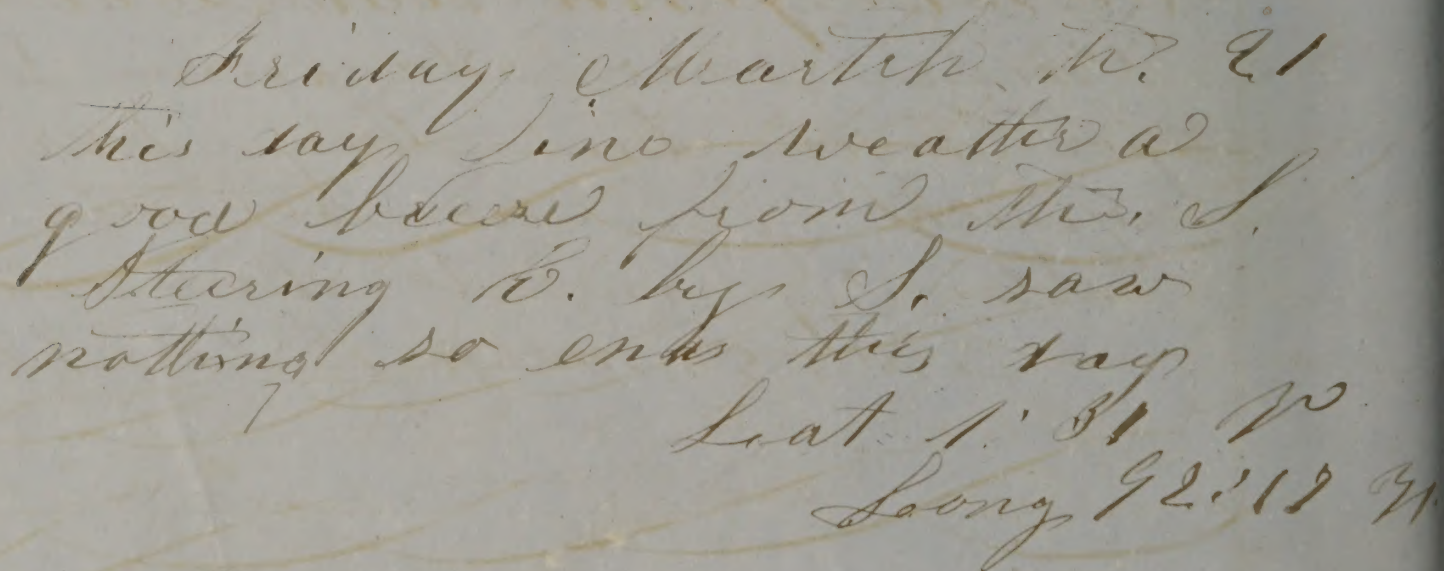 Friday March th. 21
this day fine weather a
good breeze from the. S.
Steering E. by S. saw
nothing so ends this day
Lat 1:31 N
Long 92:12 W